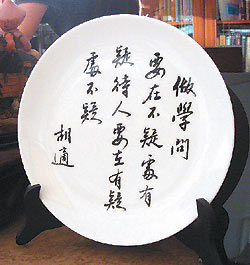 做學問
要在不疑處有
疑待人要在有疑
處不疑
胡適